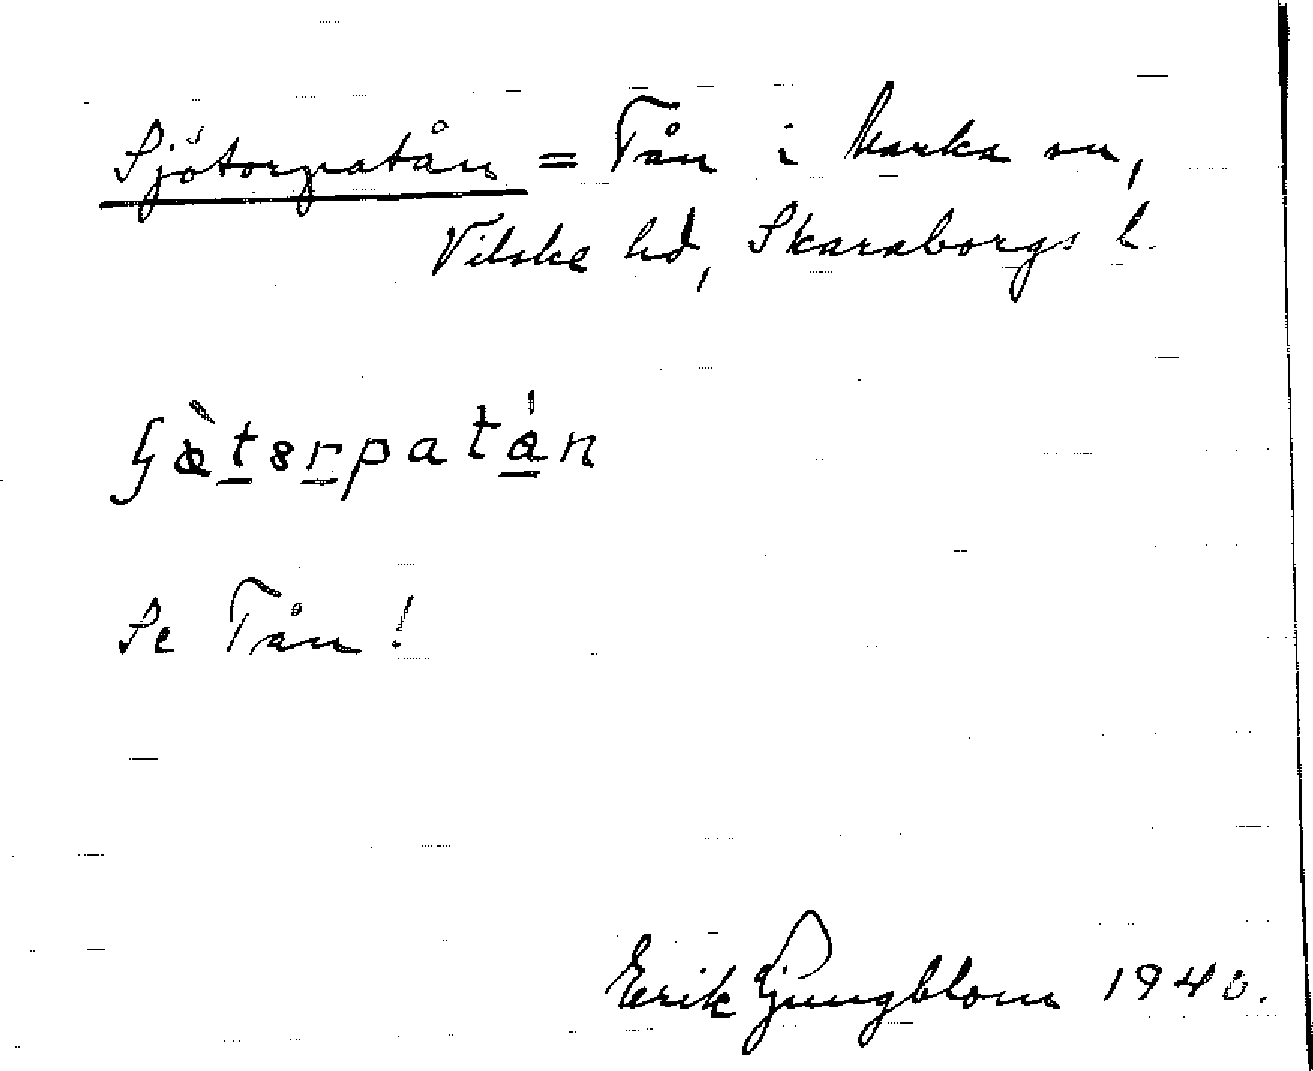 Sjötorpatån = Tån i Marka sn,
Vilske hd, Skaraborgs l.
Se Tån!
Erik Ljungblom 1940.